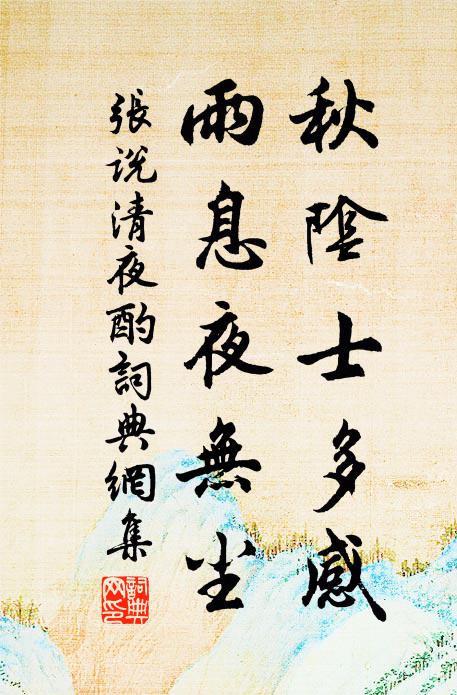 秋陰士多感
雨息夜無尘
張說清夜酌詞典網集